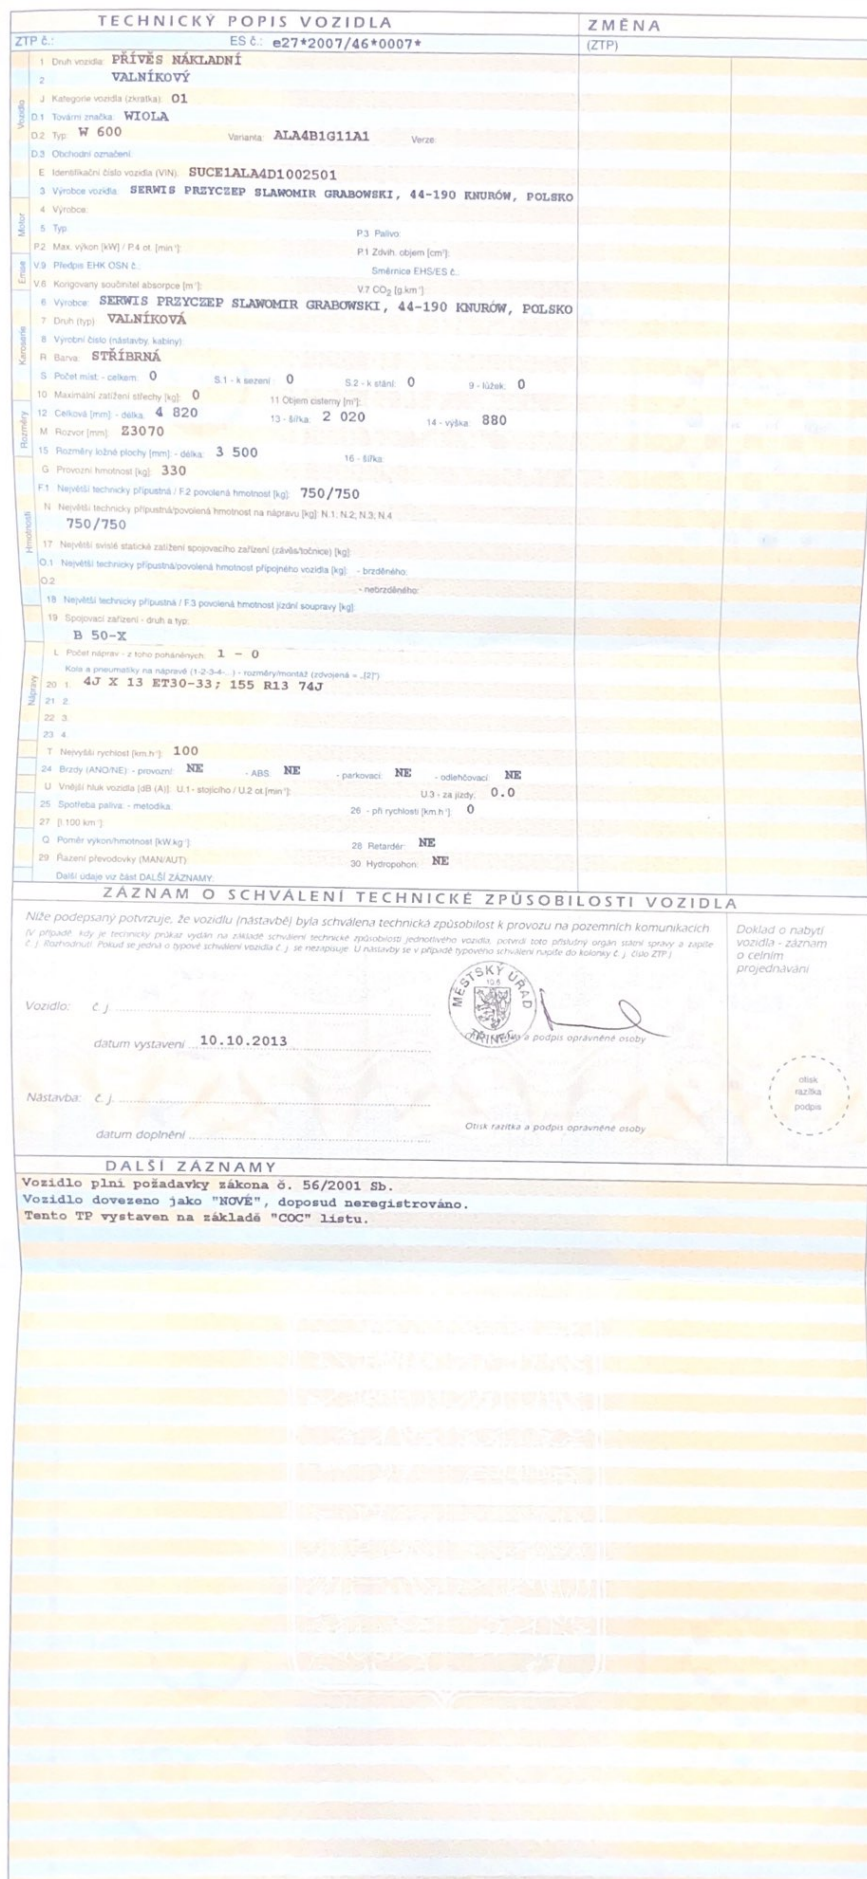 TECHNICKÝ POPIS VOZIDLA
ZMĚNA
ZTP č.: ES č.: e27*2007/46*0007*
(ZTP)
1 Druh vozidla: PŘÍVĚS NÁKLADNÍ
2 VALNÍKOVÝ
Vozidlo
J Kategorie vozidla (zkratka): O1
D.1 Tovární značka: WIOLA
D.2 Typ: W 600 Varianta: ALA4B1G11A1 Verze:
D.3 Obchodní označení:
E Identifikační číslo vozidla (VIN): SUCE1ALA4D1002501
3 Výrobce vozidla: SERWIS PRZYCZEP SLAWOMIR GRABOWSKI, 44-190 KNURÓW, POLSKO
Motor
4 Výrobce:
5 Typ: P.3 Palivo:
P.2 Max. výkon [kW] / P.4 ot. [min⁻¹]: P.1 Zdvih. objem [cm³]:
Emise
V.9 Předpis EHK OSN č.: Směrnice EHS/ES č.:
V.6 Korigovaný součinitel absorpce [m⁻¹]: V.7 CO₂ [g.km⁻¹]:
Karoserie
6 Výrobce: SERWIS PRZYCZEP SLAWOMIR GRABOWSKI, 44-190 KNURÓW, POLSKO
7 Druh (typ): VALNÍKOVÁ
8 Výrobní číslo (nástavby, kabiny):
R Barva: STŘÍBRNÁ
S Počet míst: - celkem: 0 S.1 - k sezení: 0 S.2 - k stání: 0 9 - lůžek: 0
10 Maximální zatížení střechy [kg]: 0 11 Objem cisterny [m³]:
Rozměry
12 Celková [mm]: - délka: 4 820 13 - šířka: 2 020 14 - výška: 880
M Rozvor [mm]: Z3070
15 Rozměry ložné plochy [mm]: - délka: 3 500 16 - šířka:
Hmotnosti
G Provozní hmotnost [kg]: 330
F.1 Největší technicky přípustná / F.2 povolená hmotnost [kg]: 750/750
N Největší technicky přípustná/povolená hmotnost na nápravu [kg]: N.1; N.2; N.3; N.4
750/750
17 Největší svislé statické zatížení spojovacího zařízení (závěs/točnice) [kg]:
O.1 Největší technicky přípustná/povolená hmotnost přípojného vozidla [kg]: - brzděného:
O.2 - nebrzděného:
18 Největší technicky přípustná / F.3 povolená hmotnost jízdní soupravy [kg]:
19 Spojovací zařízení - druh a typ:
B 50-X
Nápravy
L Počet náprav - z toho poháněných: 1 - 0
Kola a pneumatiky na nápravě (1-2-3-4-...) - rozměry/montáž (zdvojená = „[2]")
20 1. 4J X 13 ET30-33; 155 R13 74J
21 2.
22 3.
23 4.
T Nejvyšší rychlost [km.h⁻¹]: 100
24 Brzdy (ANO/NE): - provozní: NE - ABS: NE - parkovací: NE - odlehčovací: NE
U Vnější hluk vozidla [dB (A)]: U.1 - stojícího / U.2 ot.[min⁻¹]: U.3 - za jízdy: 0.0
25 Spotřeba paliva: - metodika: 26 - při rychlosti [km.h⁻¹]: 0
27 [l.100 km⁻¹]:
Q Poměr výkon/hmotnost [kW.kg⁻¹]: 28 Retardér: NE
29 Řazení převodovky (MAN/AUT): 30 Hydropohon: NE
Další údaje viz část DALŠÍ ZÁZNAMY:
ZÁZNAM O SCHVÁLENÍ TECHNICKÉ ZPŮSOBILOSTI VOZIDLA
Níže podepsaný potvrzuje, že vozidlu (nástavbě) byla schválena technická způsobilost k provozu na pozemních komunikacích.
(V případě, kdy je technický průkaz vydán na základě schválení technické způsobilosti jednotlivého vozidla, potvrdí toto příslušný orgán státní správy a zapíše
č. j. Rozhodnutí. Pokud se jedná o typové schválení vozidla č. j. se nezapisuje. U nástavby se v případě typového schválení napíše do kolonky č. j. číslo ZTP.)
Doklad o nabytí
vozidla - záznam
o celním
projednávání
MĚSTSKÝ ÚŘAD
TŘINEC
Vozidlo: č. j.
datum vystavení 10.10.2013
a podpis oprávněné osoby
Nástavba: č. j.
datum doplnění
Otisk razítka a podpis oprávněné osoby
otisk
razítka
podpis
DALŠÍ ZÁZNAMY
Vozidlo plní požadavky zákona č. 56/2001 Sb.
Vozidlo dovezeno jako "NOVÉ", doposud neregistrováno.
Tento TP vystaven na základě "COC" listu.